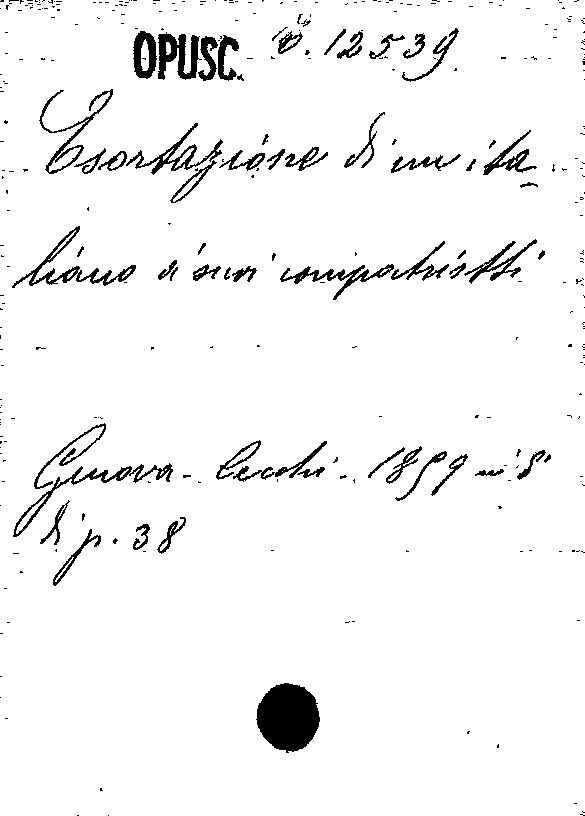 OPUSC. B. 12539
Esortazióne di un ita-
liáno a' suoi compatriótti
Genova - Cecchi - 1859 in 8°
di p. 38